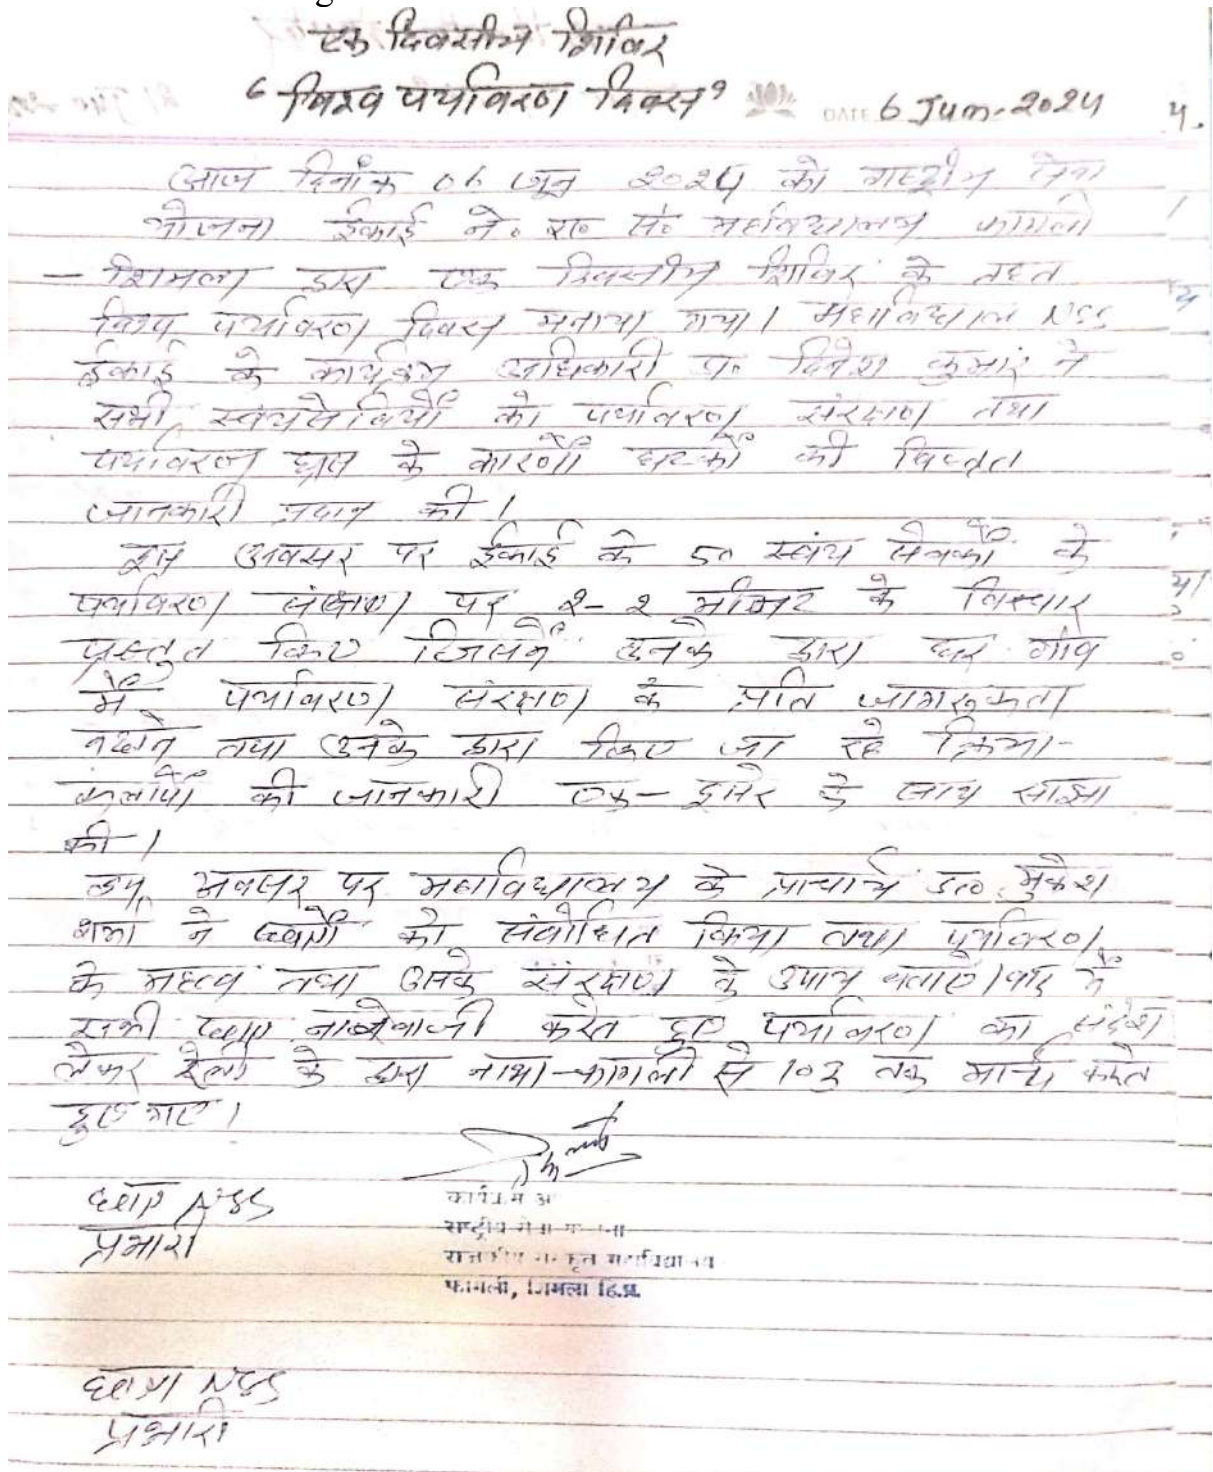 एक दिवसीय शिविर
“विश्व पर्यावरण दिवस” DATE 6 Jun. 2024 4.
आज दिनांक 06 जून 2024 को राष्ट्रीय सेवा
योजना ईकाई रा० सं० महाविद्यालय फागली
– शिमला द्वारा एक दिवसीय शिविर के तहत
विश्व पर्यावरण दिवस मनाया गया। महाविद्यालय NSS
ईकाई के कार्यक्रम अधिकारी डा० दिनेश कुमार ने
सभी स्वयंसेवियों को पर्यावरण संरक्षण तथा
पर्यावरण ह्रास के कारणों घटकों की विस्तृत
जानकारी प्रदान की।
इस अवसर पर ईकाई के 50 स्वंय सेवकों के
पर्यावरण संरक्षण पर 2-2 मीनट के विचार
प्रस्तुत किए जिसमें उनके द्वारा घर गांव
में पर्यावरण संरक्षण के प्रति जागरूकता
बढाने तथा उनके द्वारा किए जा रहे क्रिया-
कलापों की जानकारी एक-दूसरे के साथ साझा
की।
इस अवसर पर महाविद्यालय के प्राचार्य डा० मुकेश
शर्मा ने छात्रों को संबोधित किया तथा पर्यावरण
के महत्व तथा उसके संरक्षण के उपाय बताए। बाद में
सभी छात्र नारेबाजी करते हुए पर्यावरण का संदेश
लेकर रैली के द्वारा नाभा-फागली से 103 तक मार्च करते
हुए गए।
छात्र NSS
प्रभारी
कार्यक्रम
राष्ट्रीय सेवा
राजकीय संस्कृत महाविद्यालय
फागली, शिमला हि.प्र.
छात्रा NSS
प्रभारी